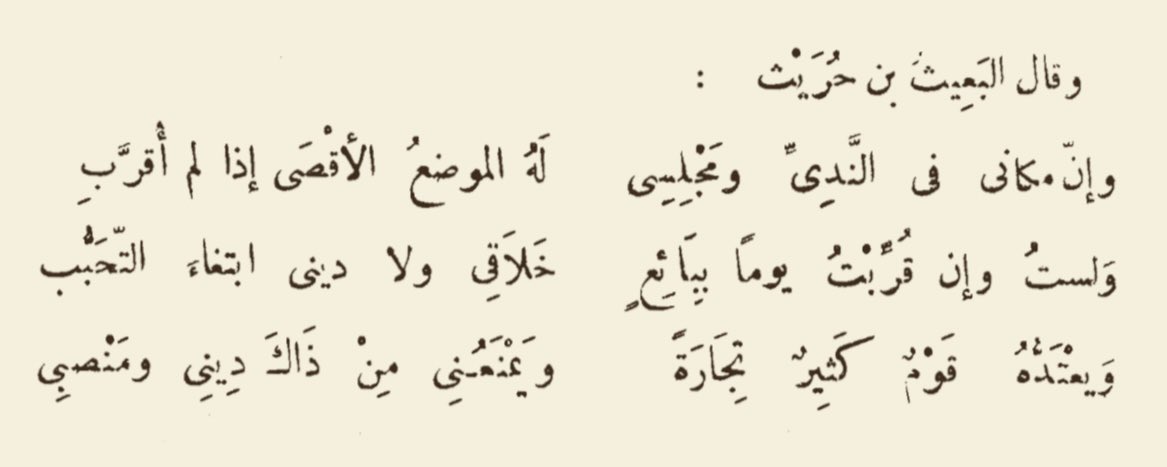 وقال البَعِيثُ بن حُرَيْث :
وإنّ مكانى فى النَّدِىِّ ومَجْلِسِى لَهُ الموضعُ الأقْصَى إذا لم أُقرَّبِ
وَلستُ وإن قُرِّبْتُ يوماً بِبَائِعٍ خَلاَقِى ولا دينى ابتغاءَ التّحَبُّب
وَيعْتَدُّهُ قَوْمٌ كَثِيرٌ تِجَارَةً ويَمْنَعُنِي مِنْ ذَاكَ دِينِي ومَنْصبِي